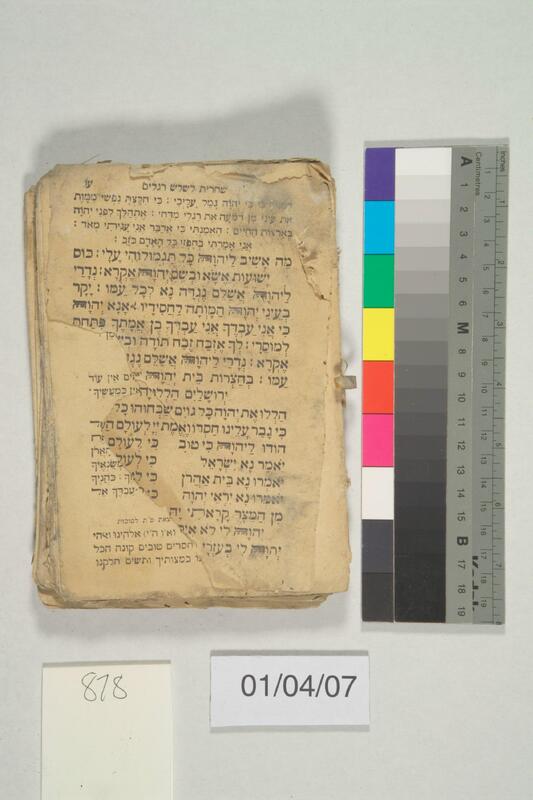 שחרית לשלש רגלים
עו
כי יהוה גמל עליכי : כי חלצת נפשי ממות
את עיני מן דמעה את רגלי מדחי : אתהלך לפני יהוה
בארצות החיים : האמנתי כי אדבר אני עניתי מאד :
אני אמרתי בחפזי כל האדם כזב :
מה אשיב ליהוה כל תגמולוהי עלי : כוס
ישועות אשא ובשם יהוה אקרא : נדרי
ליהוה אשלם נגדה נא לכל עמו : יקר
בעיני יהוה המותה לחסידיו : אנא יהוה
כי אני עבדך אני עבדך בן אמתך פתחת
למוסרי : לך אזבח זבח תודה
אקרא : נדרי ליהוה אשלם נגד
עמו : בחצרות בית יהוה אין עוד
ירושלים הללויה
הללו את יהוה כל גוים שבחוהו כל
כי גבר עלינו חסדו ואמת יי לעולם
הודו ליהוה כי טוב כי לעולם
יאמר נא ישראל כי לעול
יאמרו נא בית אהרן כי
יאמרו נא יראי יהוה כי
מן המצר קראתי יה
יהוה לי לא אי אלקינו
יהוה לי בעזרי חסרים טובים קונה הכל
במצותיך ותשים חלקנו
878
01/04/07
Centimetres
inches
A
1
2
3
4
5
6
M
8
9
10
11
12
13
14
15
B
17
18
19